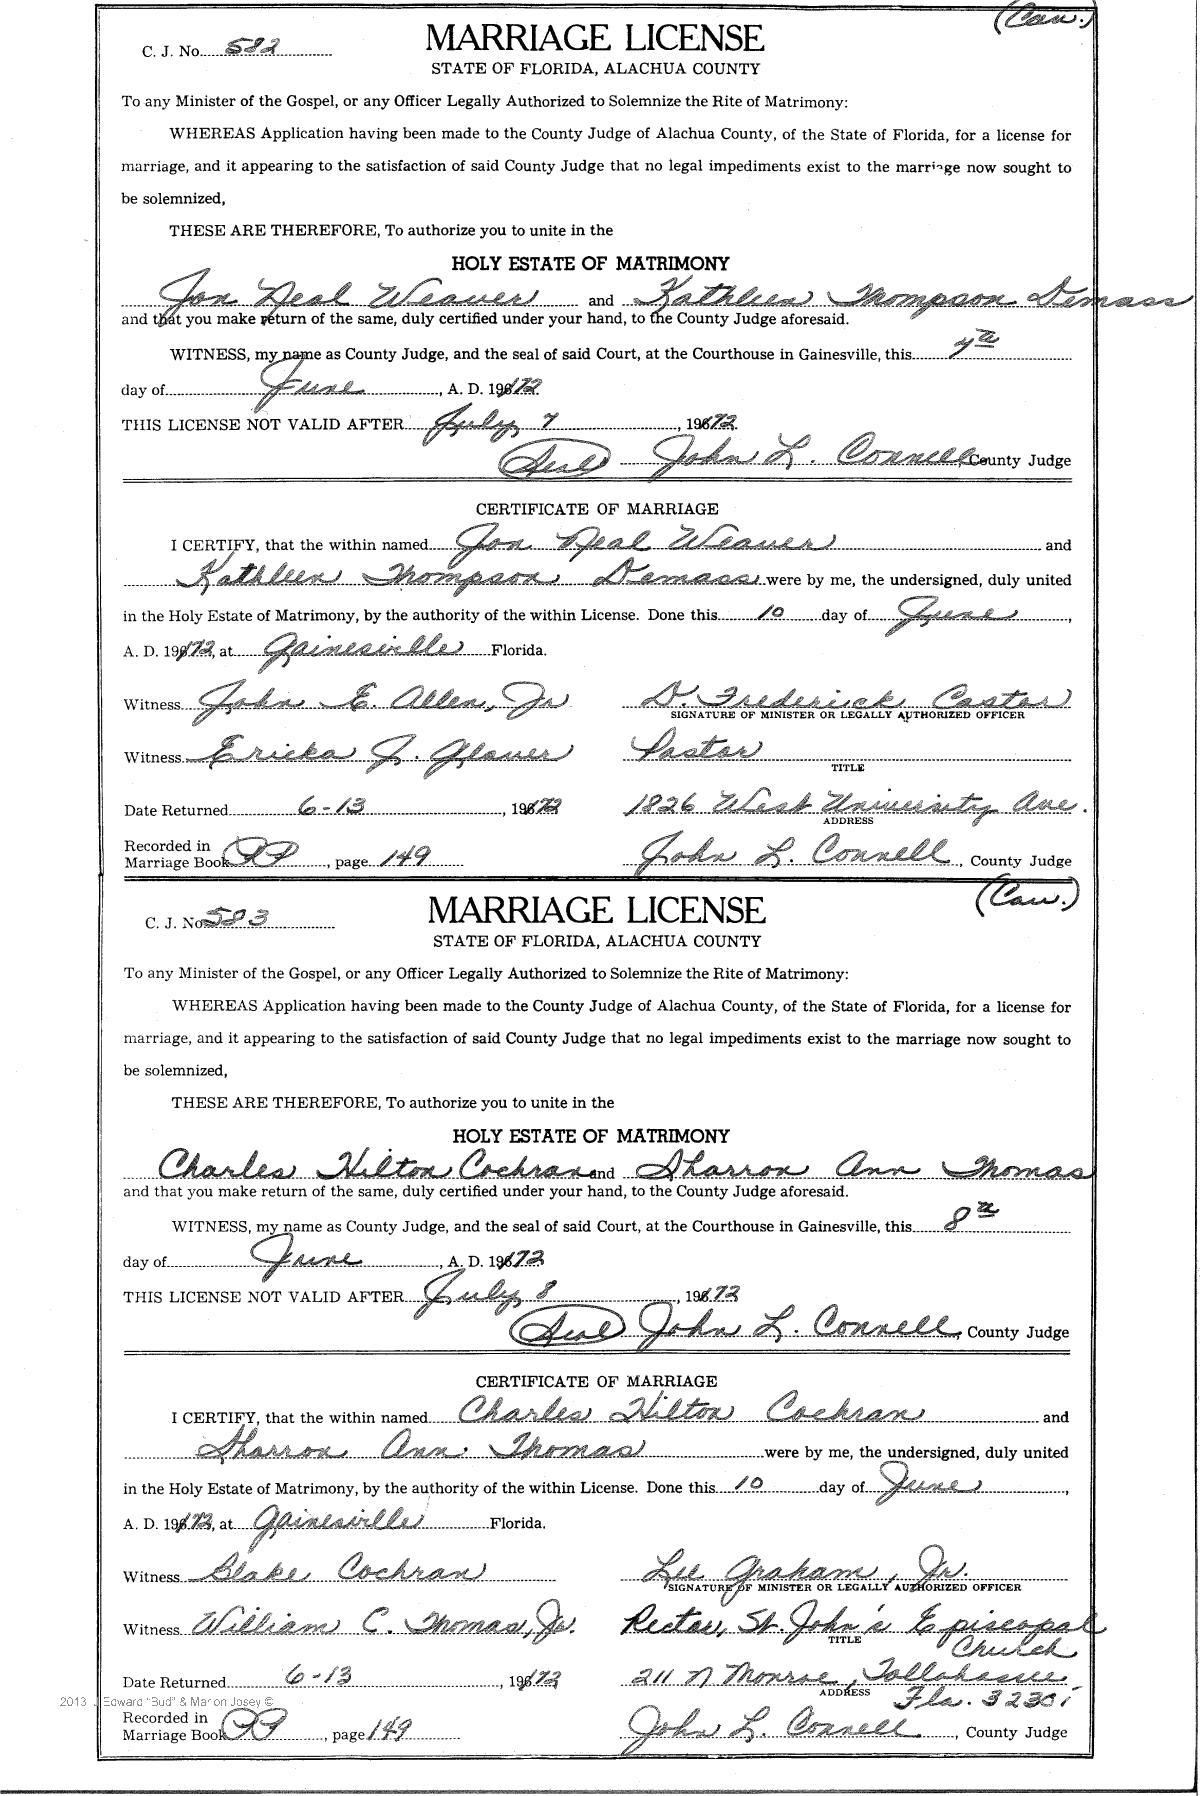 (Cau.)
C. J. No. 582 MARRIAGE LICENSE
STATE OF FLORIDA, ALACHUA COUNTY
To any Minister of the Gospel, or any Officer Legally Authorized to Solemnize the Rite of Matrimony:
WHEREAS Application having been made to the County Judge of Alachua County, of the State of Florida, for a license for
marriage, and it appearing to the satisfaction of said County Judge that no legal impediments exist to the marriage now sought to
be solemnized,
THESE ARE THEREFORE, To authorize you to unite in the
HOLY ESTATE OF MATRIMONY
Jon Neal Weaver and Kathleen Thompson Demass
and that you make return of the same, duly certified under your hand, to the County Judge aforesaid.
WITNESS, my name as County Judge, and the seal of said Court, at the Courthouse in Gainesville, this 7th
day of June, A. D. 1972
THIS LICENSE NOT VALID AFTER July 7, 1972.
(Seal) John L. Connell, County Judge
CERTIFICATE OF MARRIAGE
I CERTIFY, that the within named Jon Neal Weaver and
Kathleen Thompson Demass were by me, the undersigned, duly united
in the Holy Estate of Matrimony, by the authority of the within License. Done this 10 day of June,
A. D. 1972, at Gainesville Florida.
Witness John E. Allen, Jr D. Frederick Castor
SIGNATURE OF MINISTER OR LEGALLY AUTHORIZED OFFICER
Witness Ericka J. Glover Pastor
TITLE
Date Returned 6-13, 1972 1826 West University Ave.
ADDRESS
Recorded in
Marriage Book PP, page 149 John L. Connell, County Judge
(Cau.)
C. J. No 583 MARRIAGE LICENSE
STATE OF FLORIDA, ALACHUA COUNTY
To any Minister of the Gospel, or any Officer Legally Authorized to Solemnize the Rite of Matrimony:
WHEREAS Application having been made to the County Judge of Alachua County, of the State of Florida, for a license for
marriage, and it appearing to the satisfaction of said County Judge that no legal impediments exist to the marriage now sought to
be solemnized,
THESE ARE THEREFORE, To authorize you to unite in the
HOLY ESTATE OF MATRIMONY
Charles Hilton Cochran and Sharron Ann Thomas
and that you make return of the same, duly certified under your hand, to the County Judge aforesaid.
WITNESS, my name as County Judge, and the seal of said Court, at the Courthouse in Gainesville, this 8th
day of June, A. D. 1972
THIS LICENSE NOT VALID AFTER July 8, 1972
(Seal) John L. Connell, County Judge
CERTIFICATE OF MARRIAGE
I CERTIFY, that the within named Charles Hilton Cochran and
Sharron Ann Thomas were by me, the undersigned, duly united
in the Holy Estate of Matrimony, by the authority of the within License. Done this 10 day of June,
A. D. 1972, at Gainesville Florida.
Witness Blake Cochran Lee Graham, Jr.
SIGNATURE OF MINISTER OR LEGALLY AUTHORIZED OFFICER
Witness William C. Thomas, Jr. Rector, St. John's Episcopal
TITLE Church
Date Returned 6-13, 1972 211 N Monroe, Tallahassee
ADDRESS Fla. 32301
2013 J Edward "Bud" & Marion Josey ©
Recorded in
Marriage Book PP, page 149 John L. Connell, County Judge